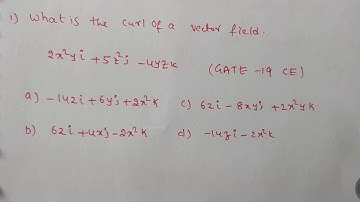 1) What is the curl of a vector field.
2x²yi + 5z²j - 4yzk (GATE -19 CE)
a) -14zi + 6yj + 2x²k c) 6zi - 8xyj + 2x²yk
b) 6zi + 4xj - 2x²k d) -14zi - 2x²k